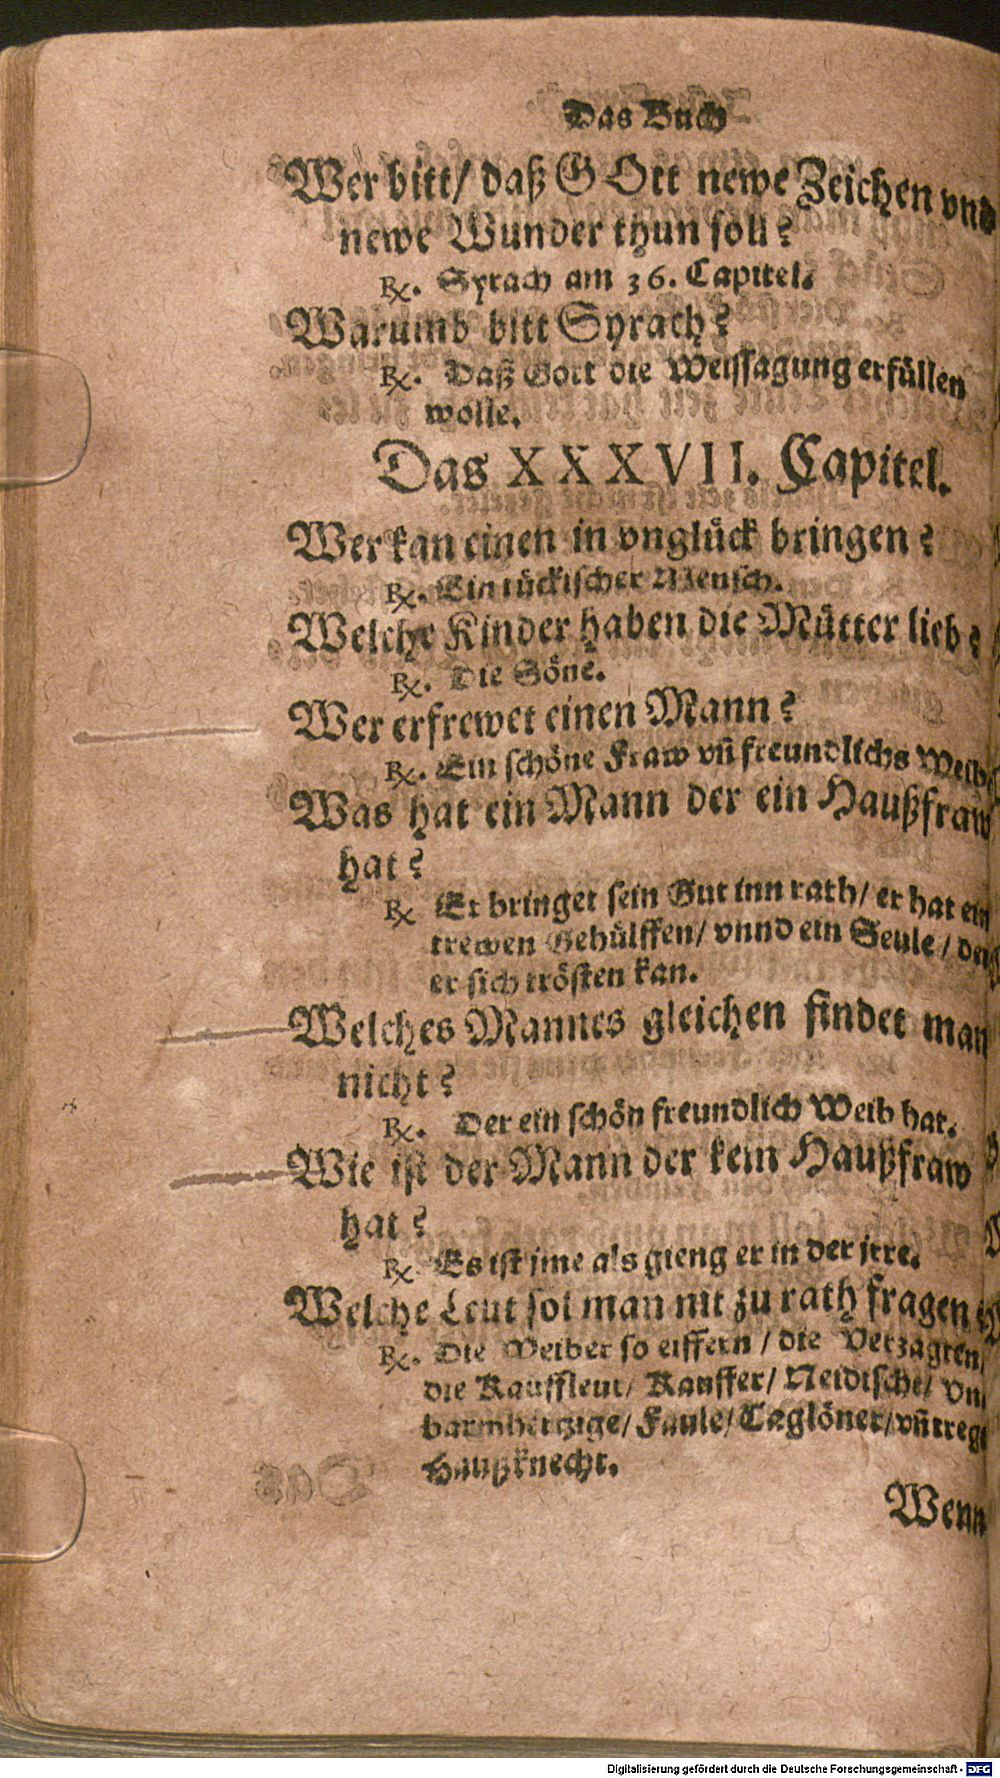 Das Buch
Wer bitt/ daß GOtt newe Zeichen vnd
newe Wunder thun soll?
℞. Syrach am 36. Capitel.
Warumb bitt Syrach?
℞. Daß Gott die Weissagung erfüllen
wolle.
Das XXXVII. Capitel.
Wer kan einen in vnglück bringen?
℞. Ein tückischer Mensch.
Welche Kinder haben die Mütter lieb?
℞. Die Söne.
Wer erfrewet einen Mann?
℞. Ein schöne Fraw vñ freundlichs Weib.
Was hat ein Mann der ein Haußfraw
hat?
℞ Er bringet sein Gut inn rath/ er hat ein
trewen Gehülffen/ vnnd ein Seule/ der
er sich trösten kan.
Welches Mannes gleichen findet man
nicht?
℞. Der ein schön freundlich Weib hat.
Wie ist der Mann der kein Haußfraw
hat?
℞. Es ist jme als gieng er in der jrre.
Welche Leut sol man nit zu rath fragen?
℞. Die Weiber so eiffern/ die Verzagten/
die Kauffleut/ Kauffer/ Neidische/ vn
barmhertzige/ Faule/ Taglöner/ vñ trege
Haußknecht.
Wenn
Digitalisierung gefördert durch die Deutsche Forschungsgemeinschaft - DFG